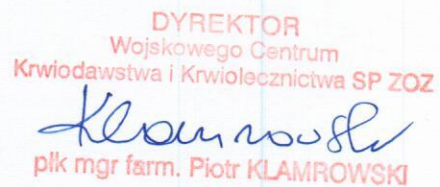 DYREKTOR
Wojskowego Centrum
Krwiodawstwa i Krwiolecznictwa SP ZOZ
Klamrowski
płk mgr farm. Piotr KLAMROWSKI